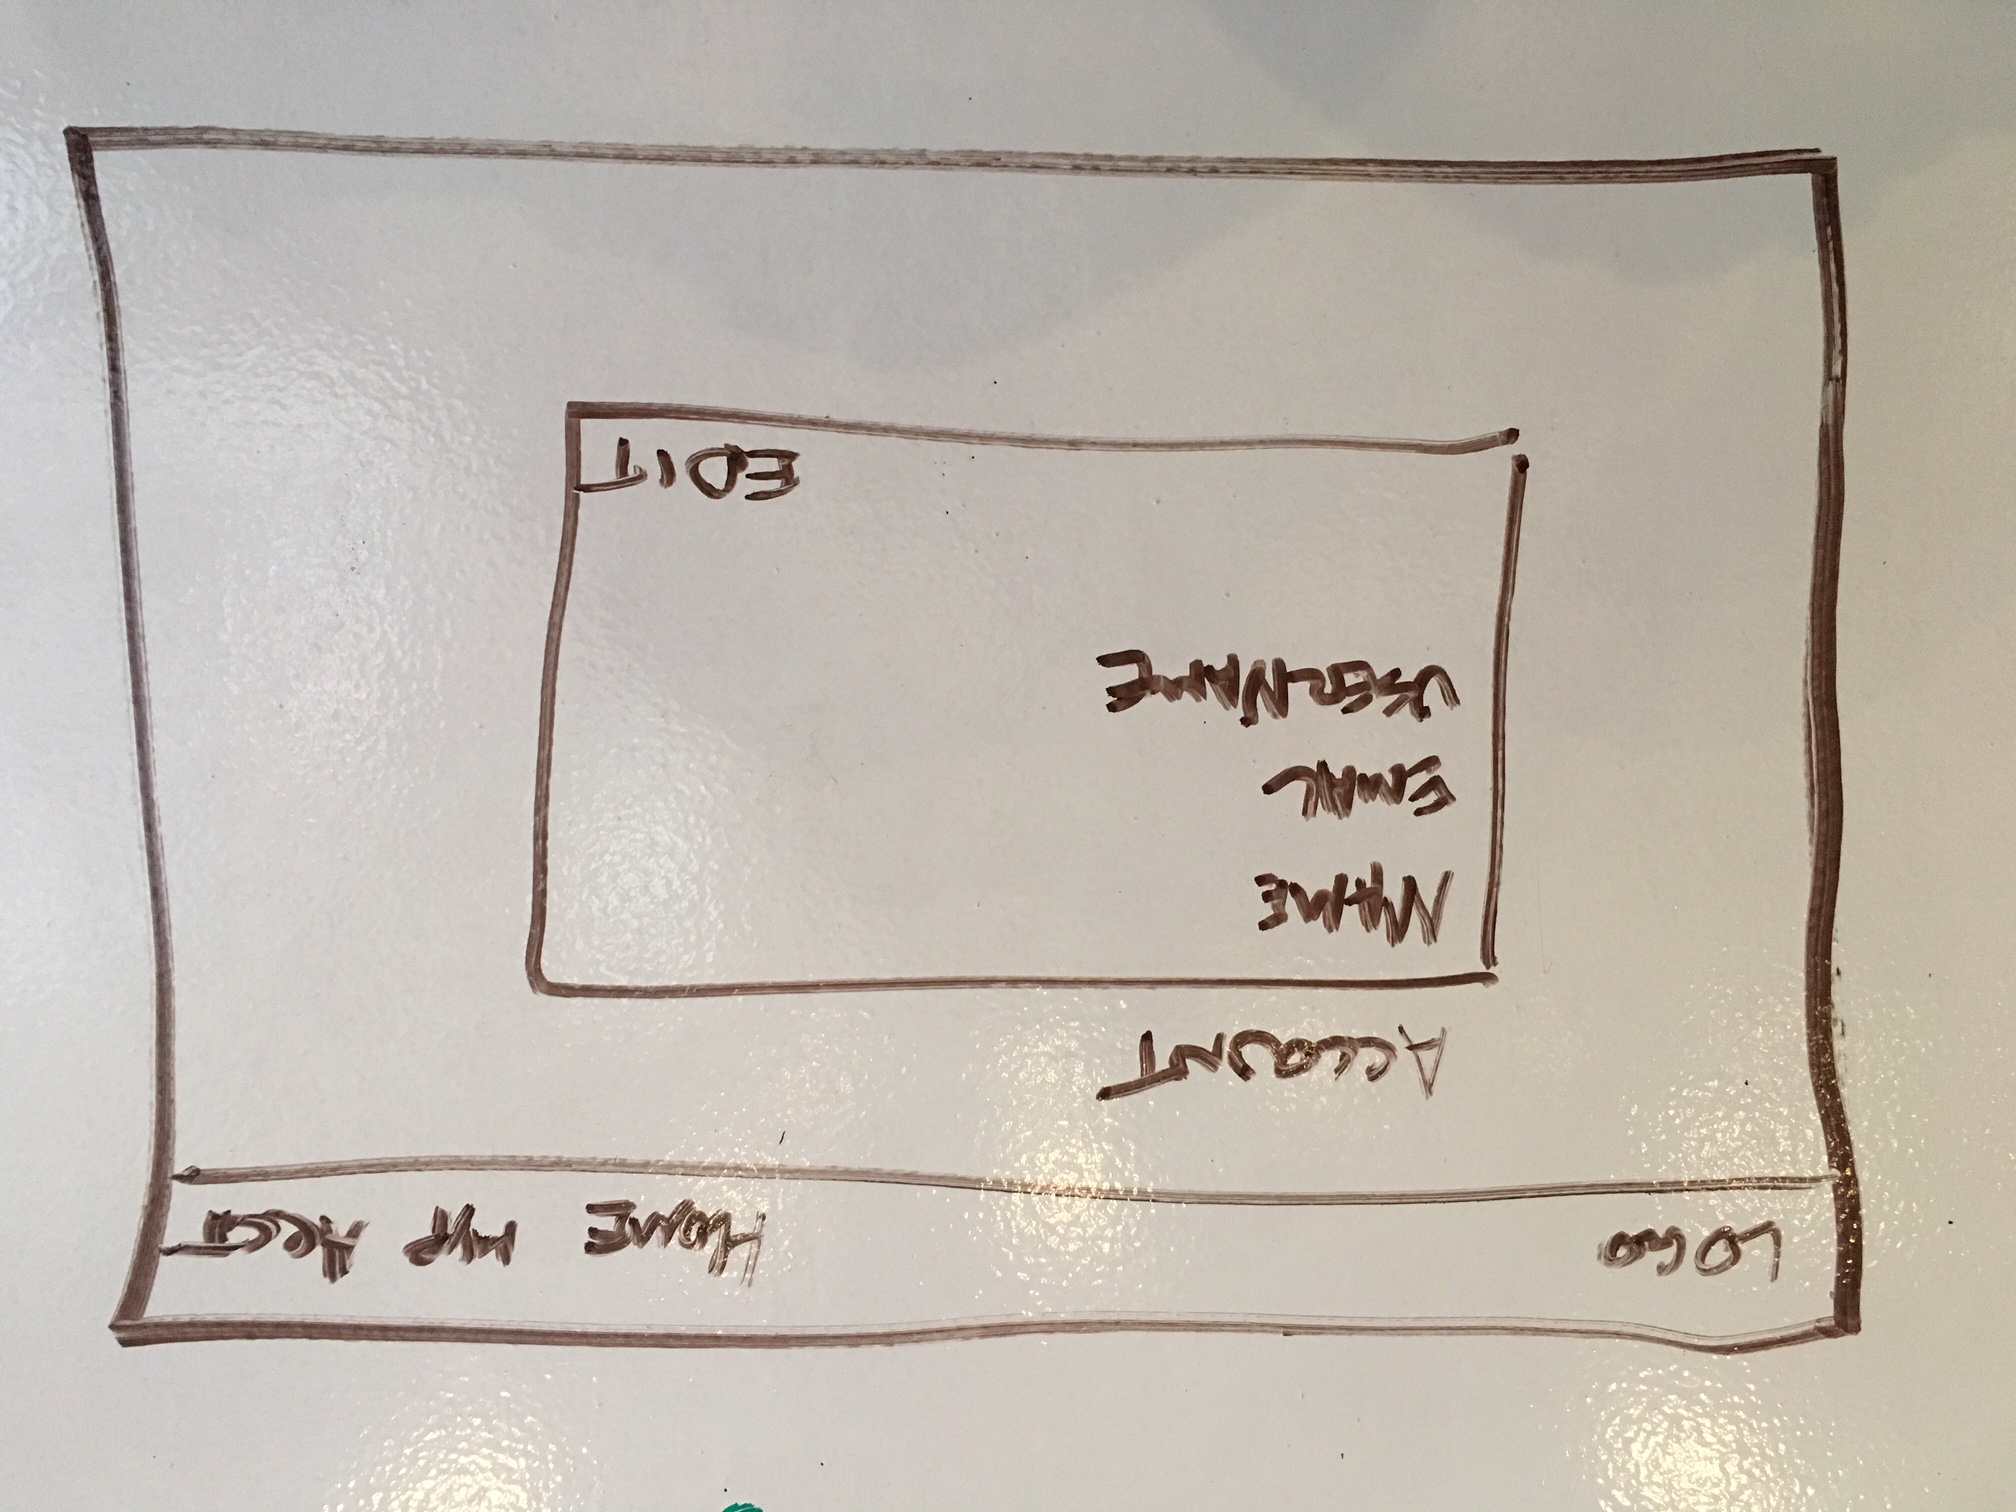 LOGO HOME MYP ACCT
ACCOUNT
NAME
EMAIL
USERNAME
EDIT